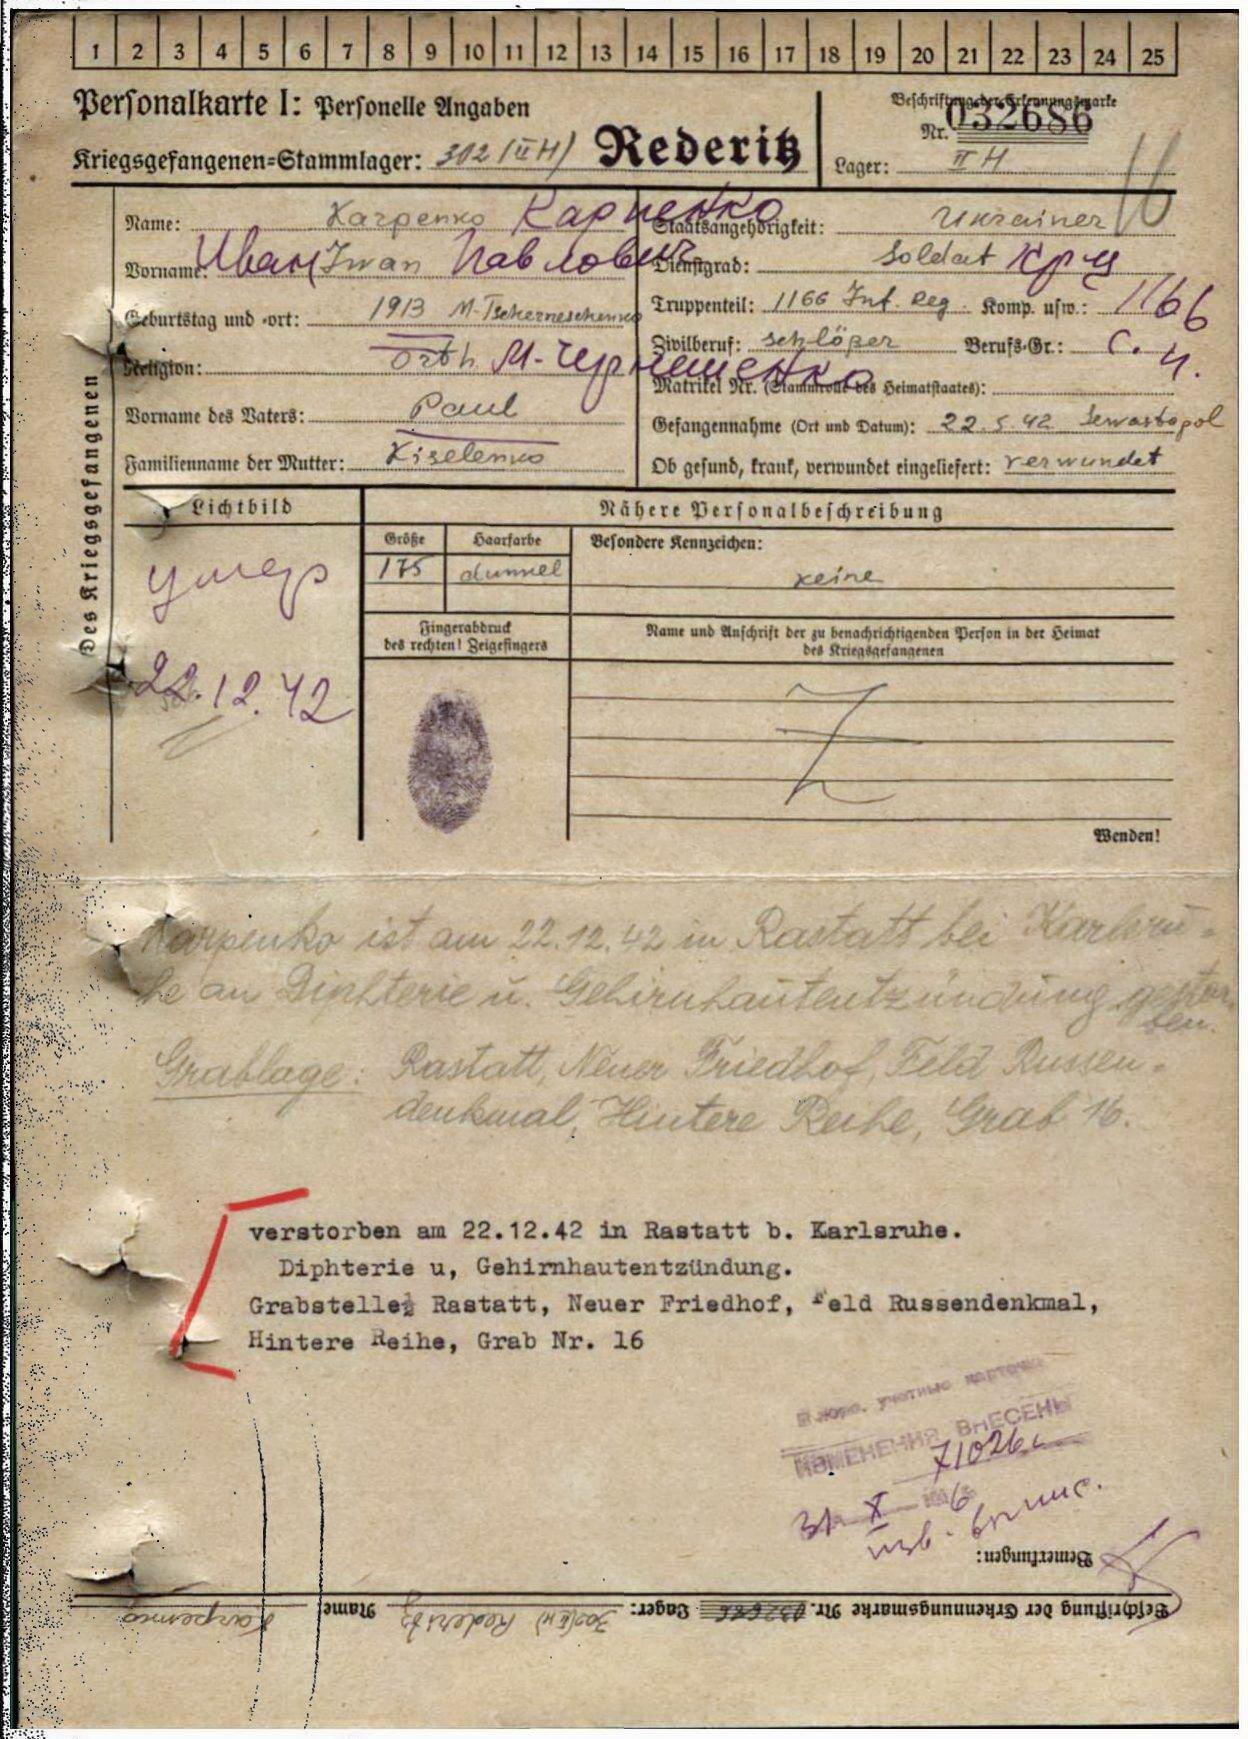 1 2 3 4 5 6 7 8 9 10 11 12 13 14 15 16 17 18 19 20 21 22 23 24 25
Personalkarte I: Personelle Angaben
Beschriftung der Erkennungsmarke
Nr. 032686
Kriegsgefangenen-Stammlager: 302 (II H) Rederitz
Lager: II H
Des Kriegsgefangenen
Name: Karpenko Карпенко
Vorname: Иван Iwan Павлович
Geburtstag und -ort: 1913 M-Tscherneschenko
Religion: Orth. М-Чернешенко
Vorname des Vaters: Paul
Familienname der Mutter: Kiselenko
Staatsangehörigkeit: Ukrainer
Dienstgrad: Soldat Кр-ц
Truppenteil: 1166 Inf. Reg. Komp. usw.: 1166
Zivilberuf: Schlößer Berufs-Gr.: с. п.
Matrikel Nr. (Stammrolle des Heimatstaates):
Gefangennahme (Ort und Datum): 22.5.42 Sewastopol
Ob gesund, krank, verwundet eingeliefert: verwundet
Lichtbild
умер
22.12.42
Nähere Personalbeschreibung
Größe Haarfarbe Besondere Kennzeichen:
175 dunkel keine
Fingerabdruck
des rechten! Zeigefingers
Name und Anschrift der zu benachrichtigenden Person in der Heimat
des Kriegsgefangenen
Wenden!
Karpenko ist am 22.12.42 in Rastatt bei Karlsru-
he an Diphterie u. Gehirnhautentzündung gestor-
ben.
Grablage: Rastatt, Neuer Friedhof, Feld Russen-
denkmal, Hintere Reihe, Grab 16.
verstorben am 22.12.42 in Rastatt b. Karlsruhe.
Diphterie u, Gehirnhautentzündung.
Grabstelle: Rastatt, Neuer Friedhof, Feld Russendenkmal,
Hintere Reihe, Grab Nr. 16
учетные карточки
ИЗМЕНЕНИЯ ВНЕСЕНЫ
71026
31 X 6
Bemerkungen:
Beschriftung der Erkennungsmarke Nr. 032686 Lager: 302 (II H) Rederitz Name Karpenko